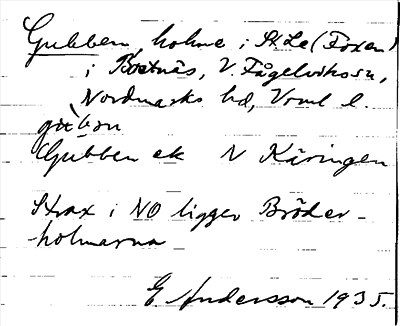 Gubben, holme i St. Le (Foxen)
i Boxtnäs, V. Fågelviks sn,
Nordmarks hd, Vrml l.
gub̀ən
Gubben ek N Käringen
Strax i NO ligger Bröder-
holmarna
E Andersson 1935.